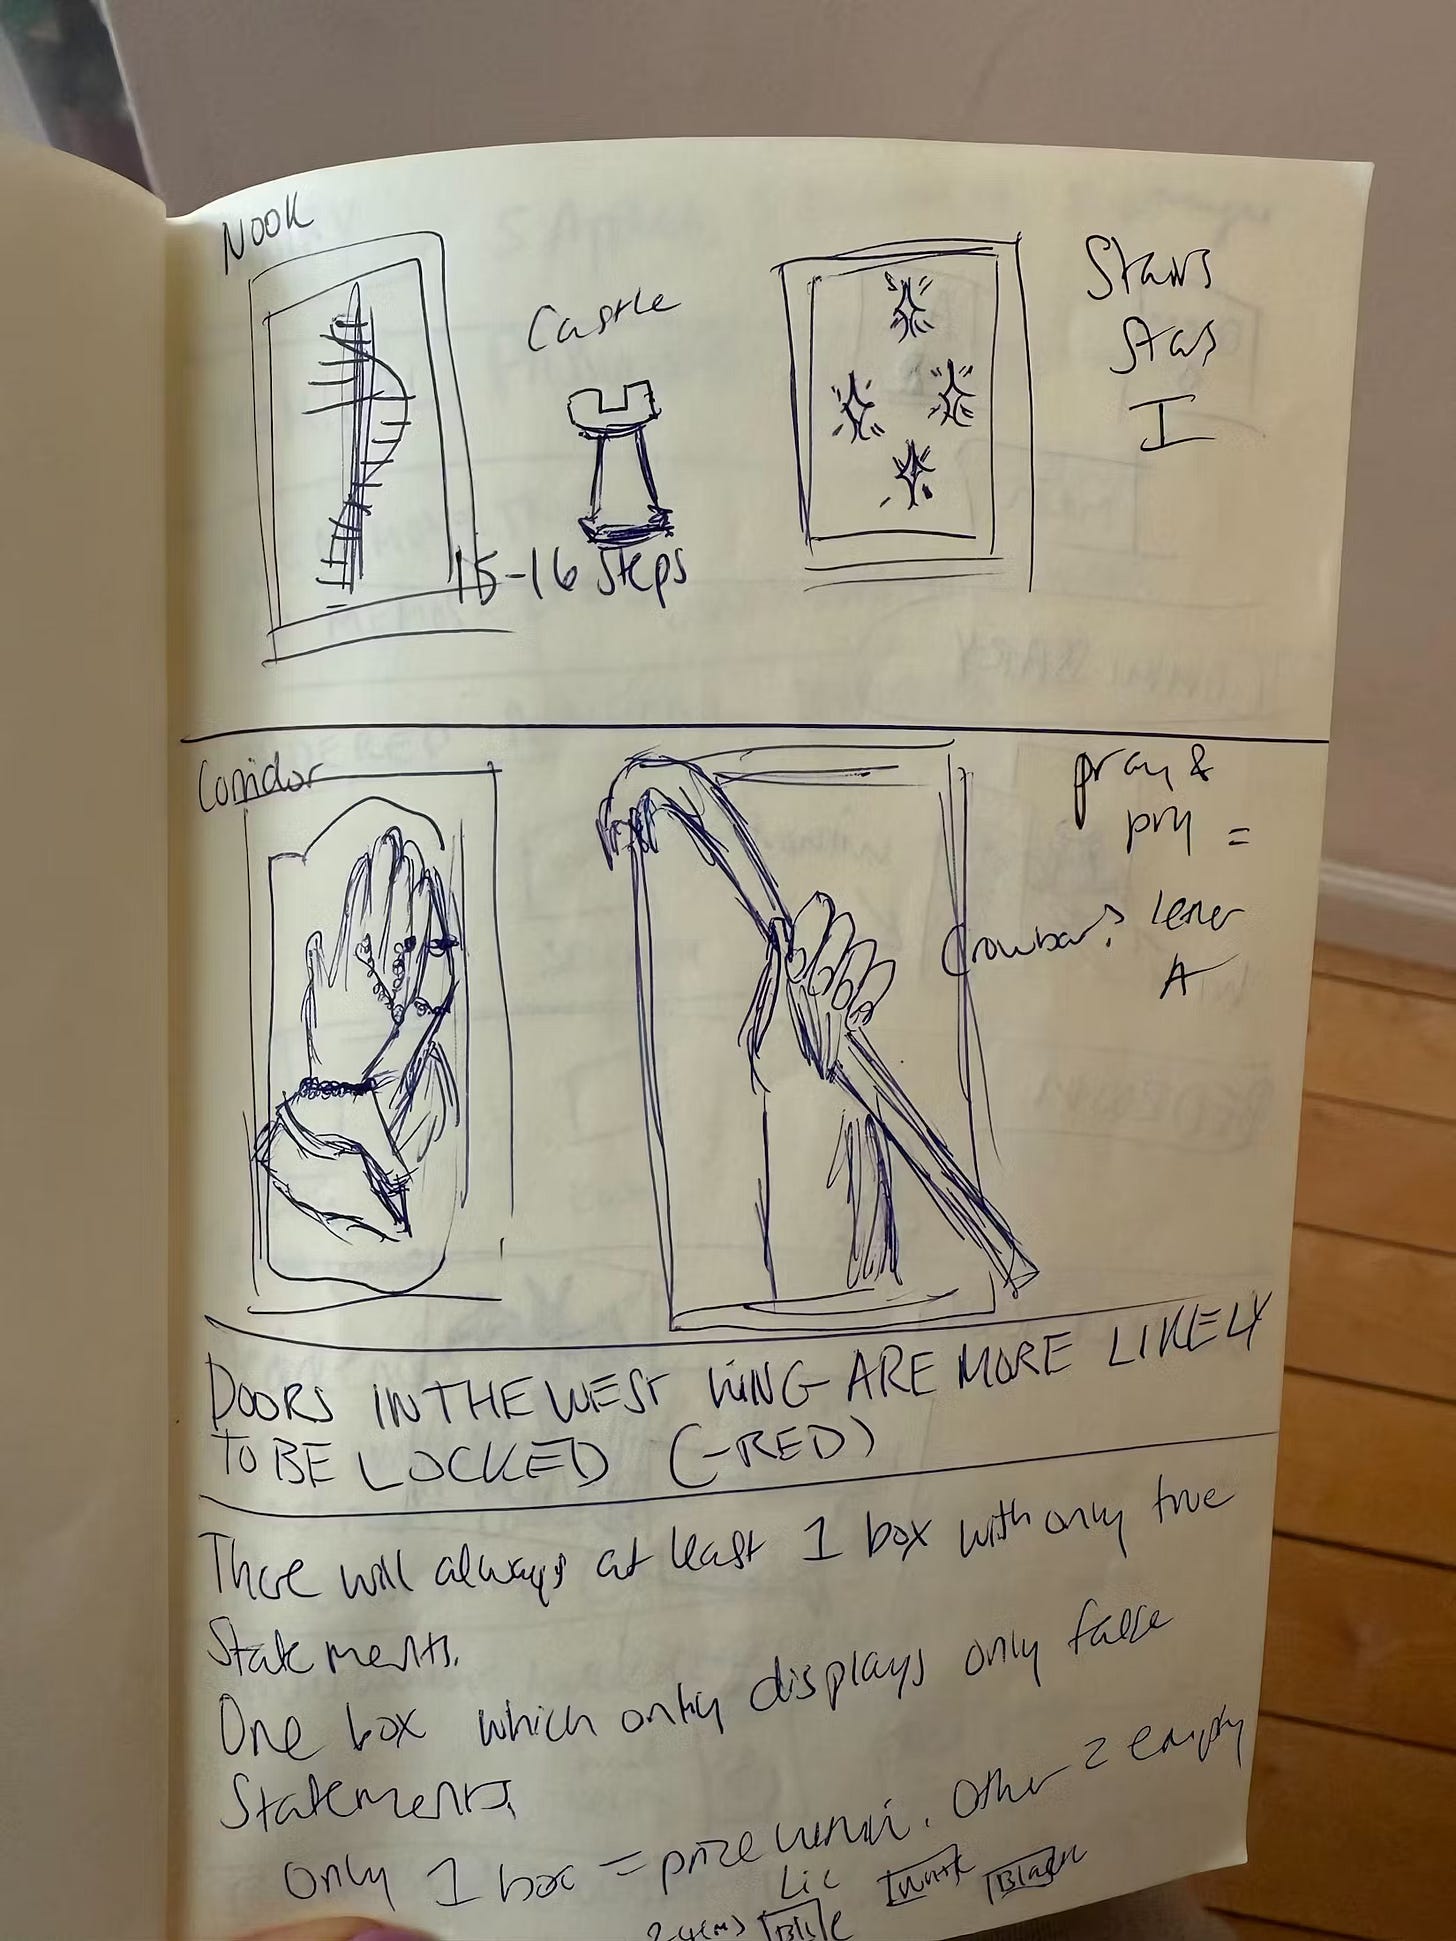 NOOK
Castle
15-16 steps
Stairs
Stars
I
Corridor
pray &
pry =
Crowbar?
letter
A
DOORS IN THE WEST WING ARE MORE LIKELY
TO BE LOCKED (-RED)
There will always at least 1 box with only true
Statements.
One box which only displays only false
Statements.
Only 1 box = prize within. Other 2 empty